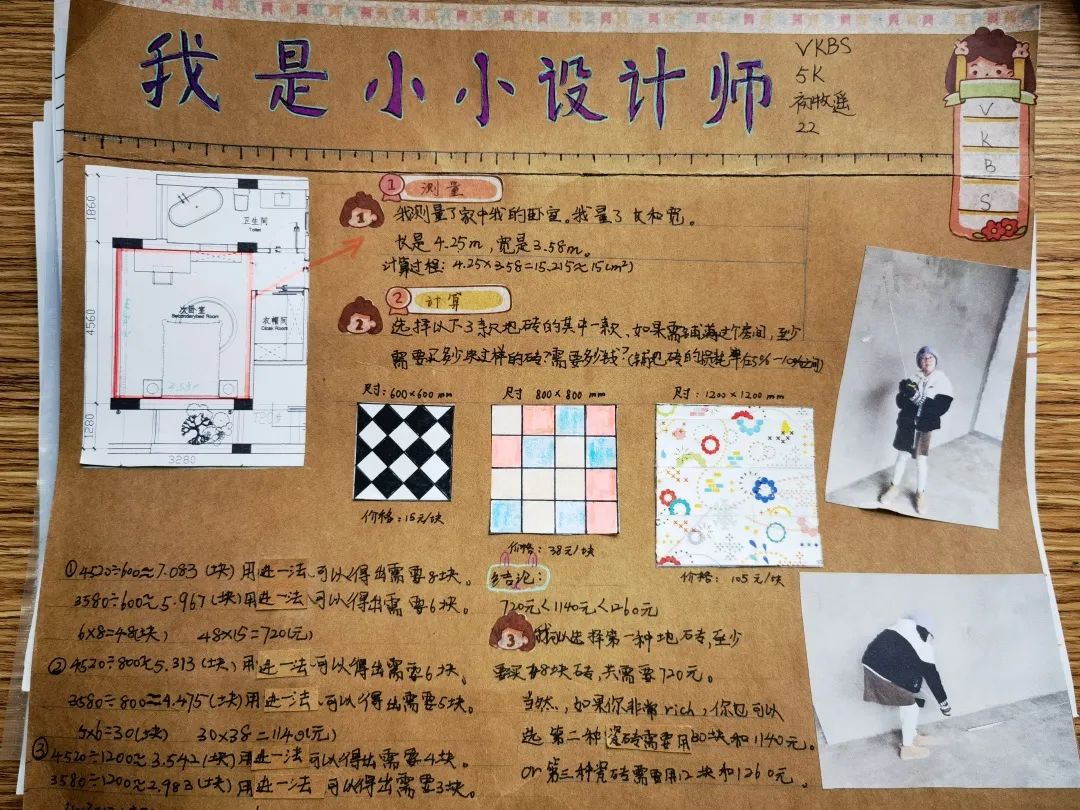 我是小小设计师
VKBS
5K
22
V
K
B
S
1860
4560
1280
3280
卫生间
Toilet
次卧室
Secondary Bed Room
衣帽间
Cloak Room
3.58m
1 测量
1
我测量了家中我的卧室。我量了长和宽。
长是4.25m，宽是3.58m。
计算过程：4.25×3.58=15.215≈15(m²)
2 计算
2
选择以下3款地砖的其中一款、如果需铺满这个房间，至少
需要买多少块这样的砖?需要多少钱?(铺地砖的损耗率在5%-10%之间)
尺寸：600×600 mm
尺寸 800×800 mm
尺寸：1200×1200 mm
价格：15元/块
价格：38元/块
价格：105元/块
①4520÷600≈7.083(块)用进一法可以得出需要8块。
3580÷600≈5.967(块)用进一法可以得出需要6块。
6×8=48(块) 48×15=720(元)
②4520÷800≈5.313(块)用进一法可以得出需要6块。
3580÷800≈4.475(块)用进一法可以得出需要5块。
5×6=30(块) 30×38=1140(元)
③4520÷1200≈3.542(块)用进一法可以得出需要4块。
3580÷1200≈2.983(块)用进一法可以得出需要3块。
结论：
720元<1140元<1260元
3
我可以选择第一种地砖，至少
要买48块砖，共需要720元。
当然，如果你非常rich，你也可以
选第二种瓷砖需要用30块和1140元。
or第三种瓷砖需要用12块和1260元。